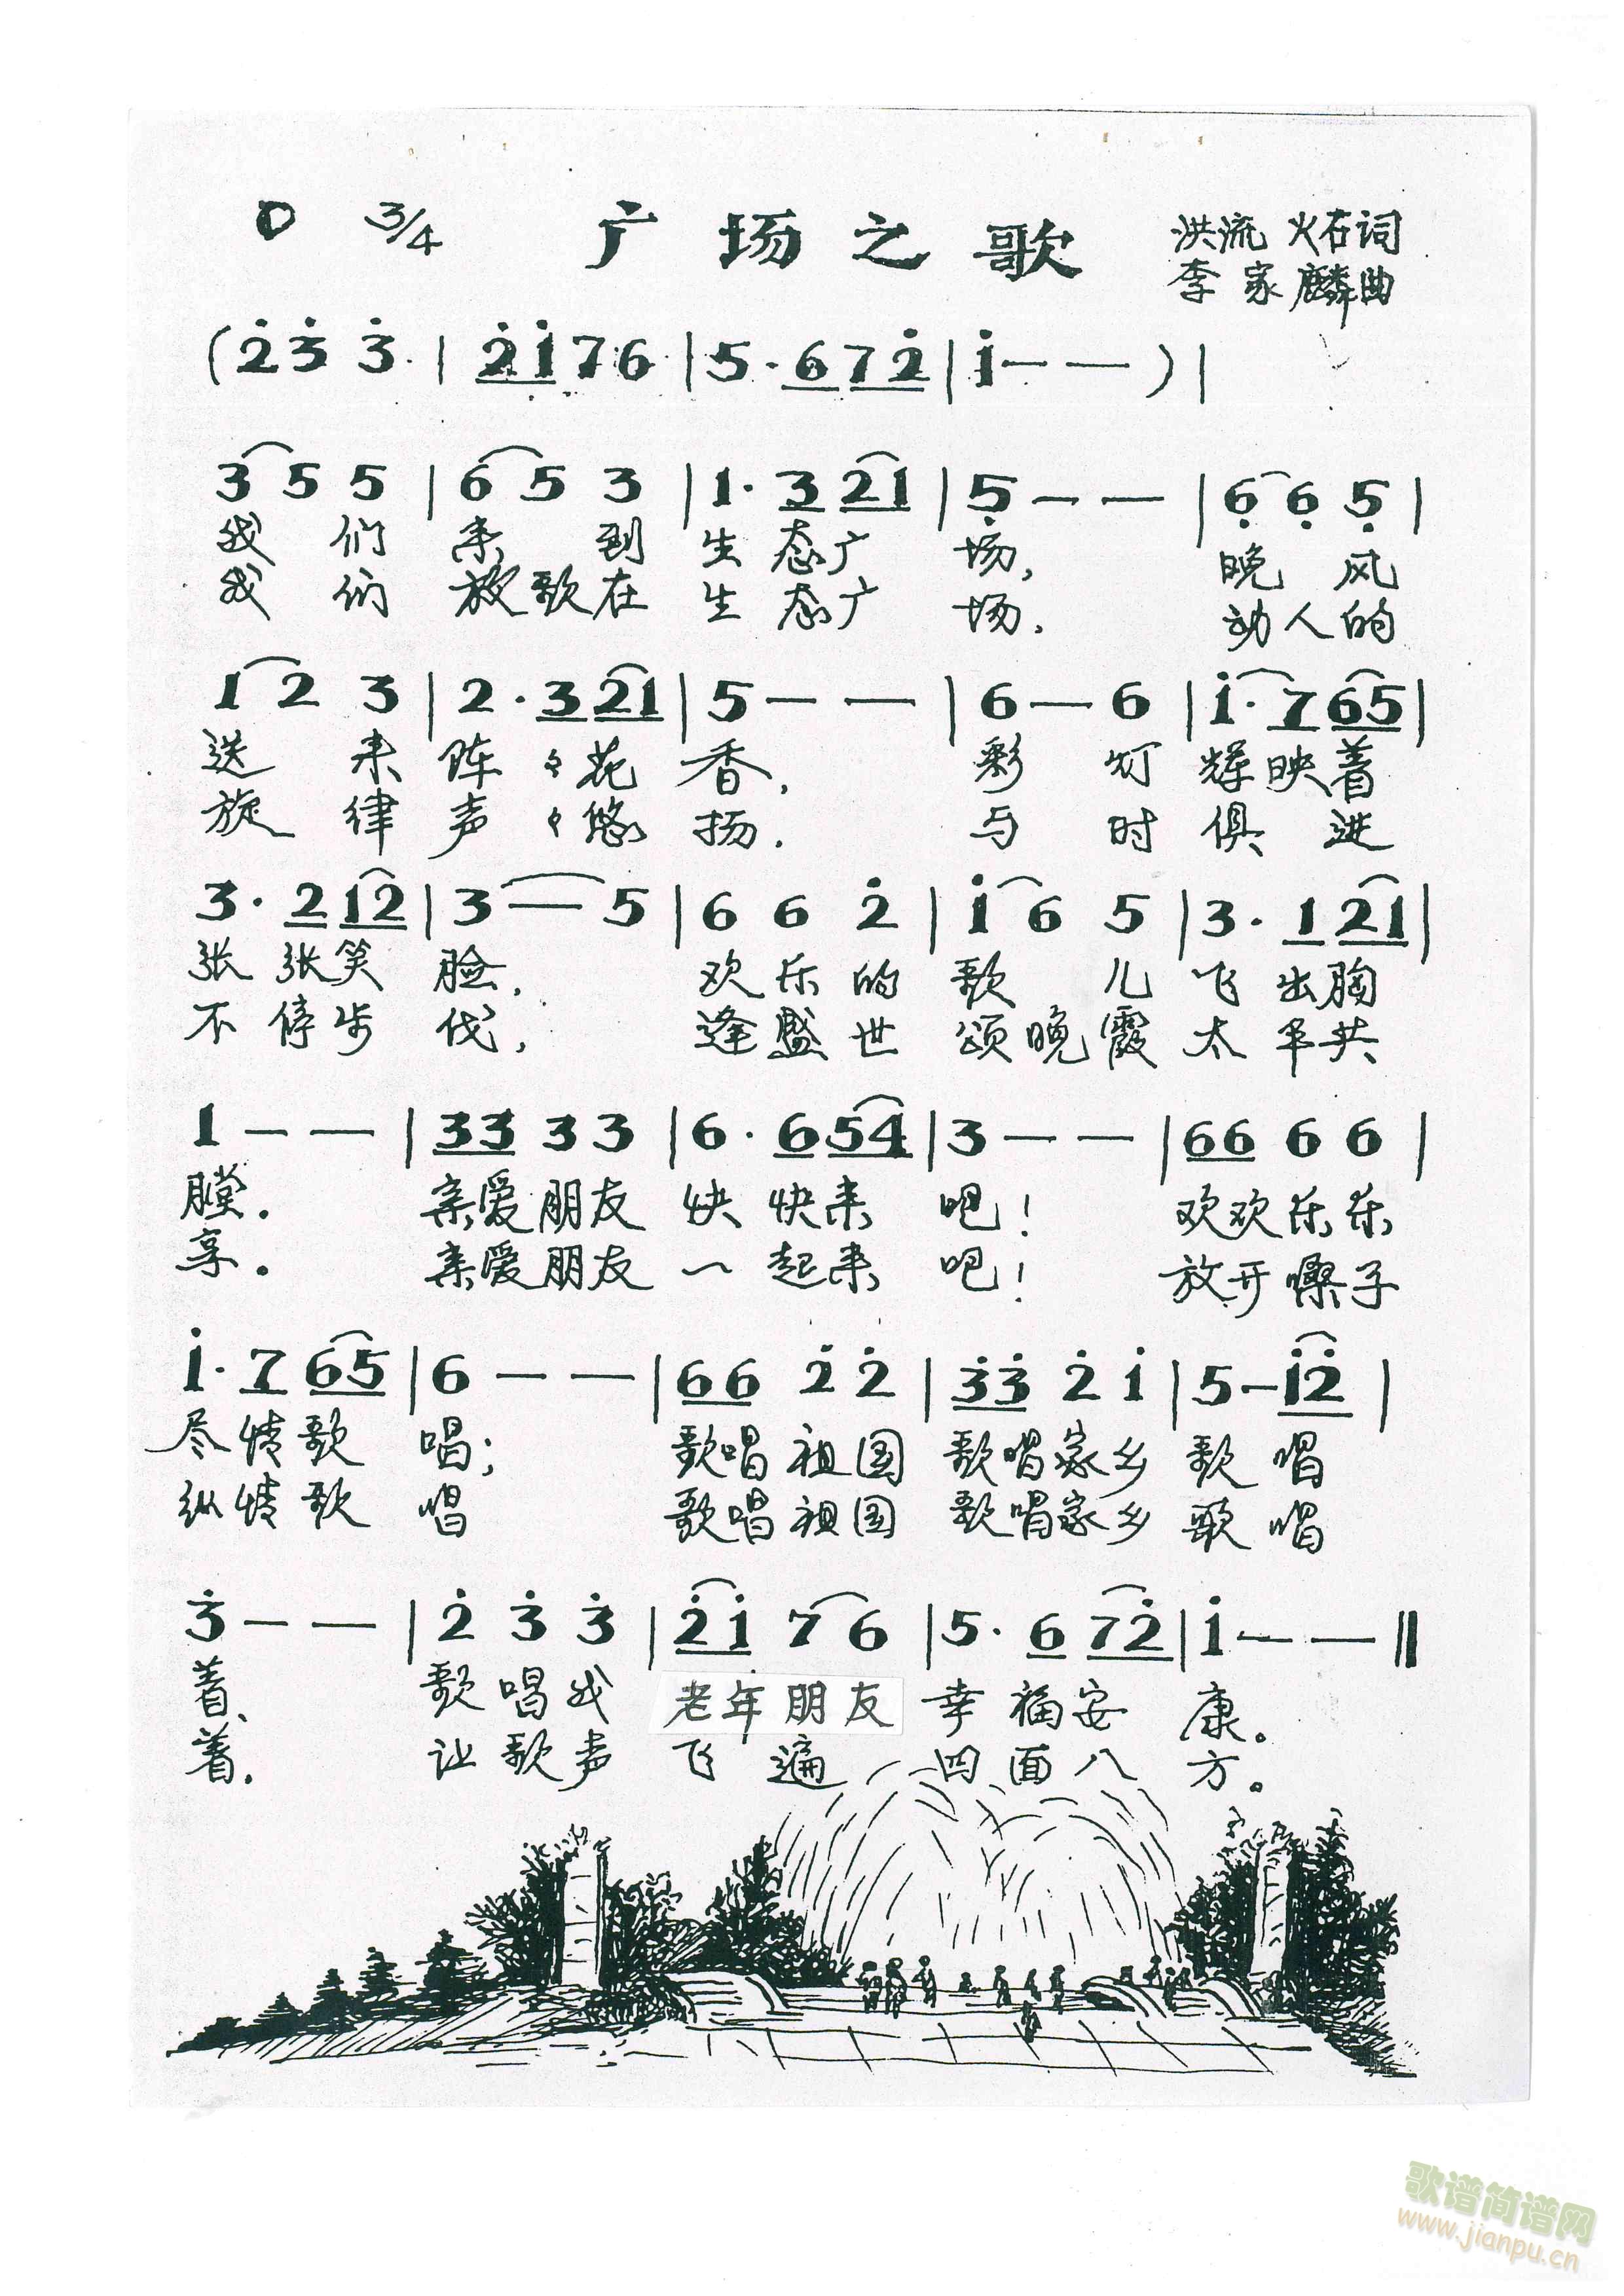 D 3/4 广场之歌 洪流 火石词
李家麟曲
(2̇ 3̇ 3̇· | 2̇1̇76 | 5·672̇ | 1̇ — — ) |
3 5 5 | 6 5 3 | 1·3 21 | 5̣ — — | 6̣ 6̣ 5̣ |
我 们 来 到 生 态广 场, 晚 风
我 们 放歌在 生 态广 场. 动人的
1 2 3 | 2·3 21 | 5 — — | 6 — 6 | 1̇·7 65 |
送 来 阵 々花 香, 彩 灯 辉映着
旋 律 声 々悠 扬. 与 时 俱 进
3·2 12 | 3 — 5 | 6 6 2̇ | 1̇ 6 5 | 3·1 21 |
张 张笑 脸, 欢 乐 的 歌 儿 飞 出胸
不 停步 伐, 逢 盛 世 颂晚霞 太 平共
1 — — | 33 3 3 | 6·6 54 | 3 — — | 66 6 6 |
膛. 亲爱朋友 快 快来 吧! 欢欢乐乐
享。 亲爱朋友 一 起来 吧! 放开嗓子
1̇·7 65 | 6 — — | 66 2̇ 2̇ | 3̇3̇ 2̇ 1̇ | 5 — 1̇2̇ |
尽情歌 唱; 歌唱祖国 歌唱家乡 歌 唱
纵情歌 唱 歌唱祖国 歌唱家乡 歌 唱
3̇ — — | 2̇ 3̇ 3̇ | 2̇1̇ 7 6 | 5·6 72̇ | 1̇ — — ‖
着、 歌 唱 我 老年朋友 幸 福安 康。
着. 让 歌 声 飞 遍 四 面 八 方。
歌谱简谱网
www.jianpu.cn